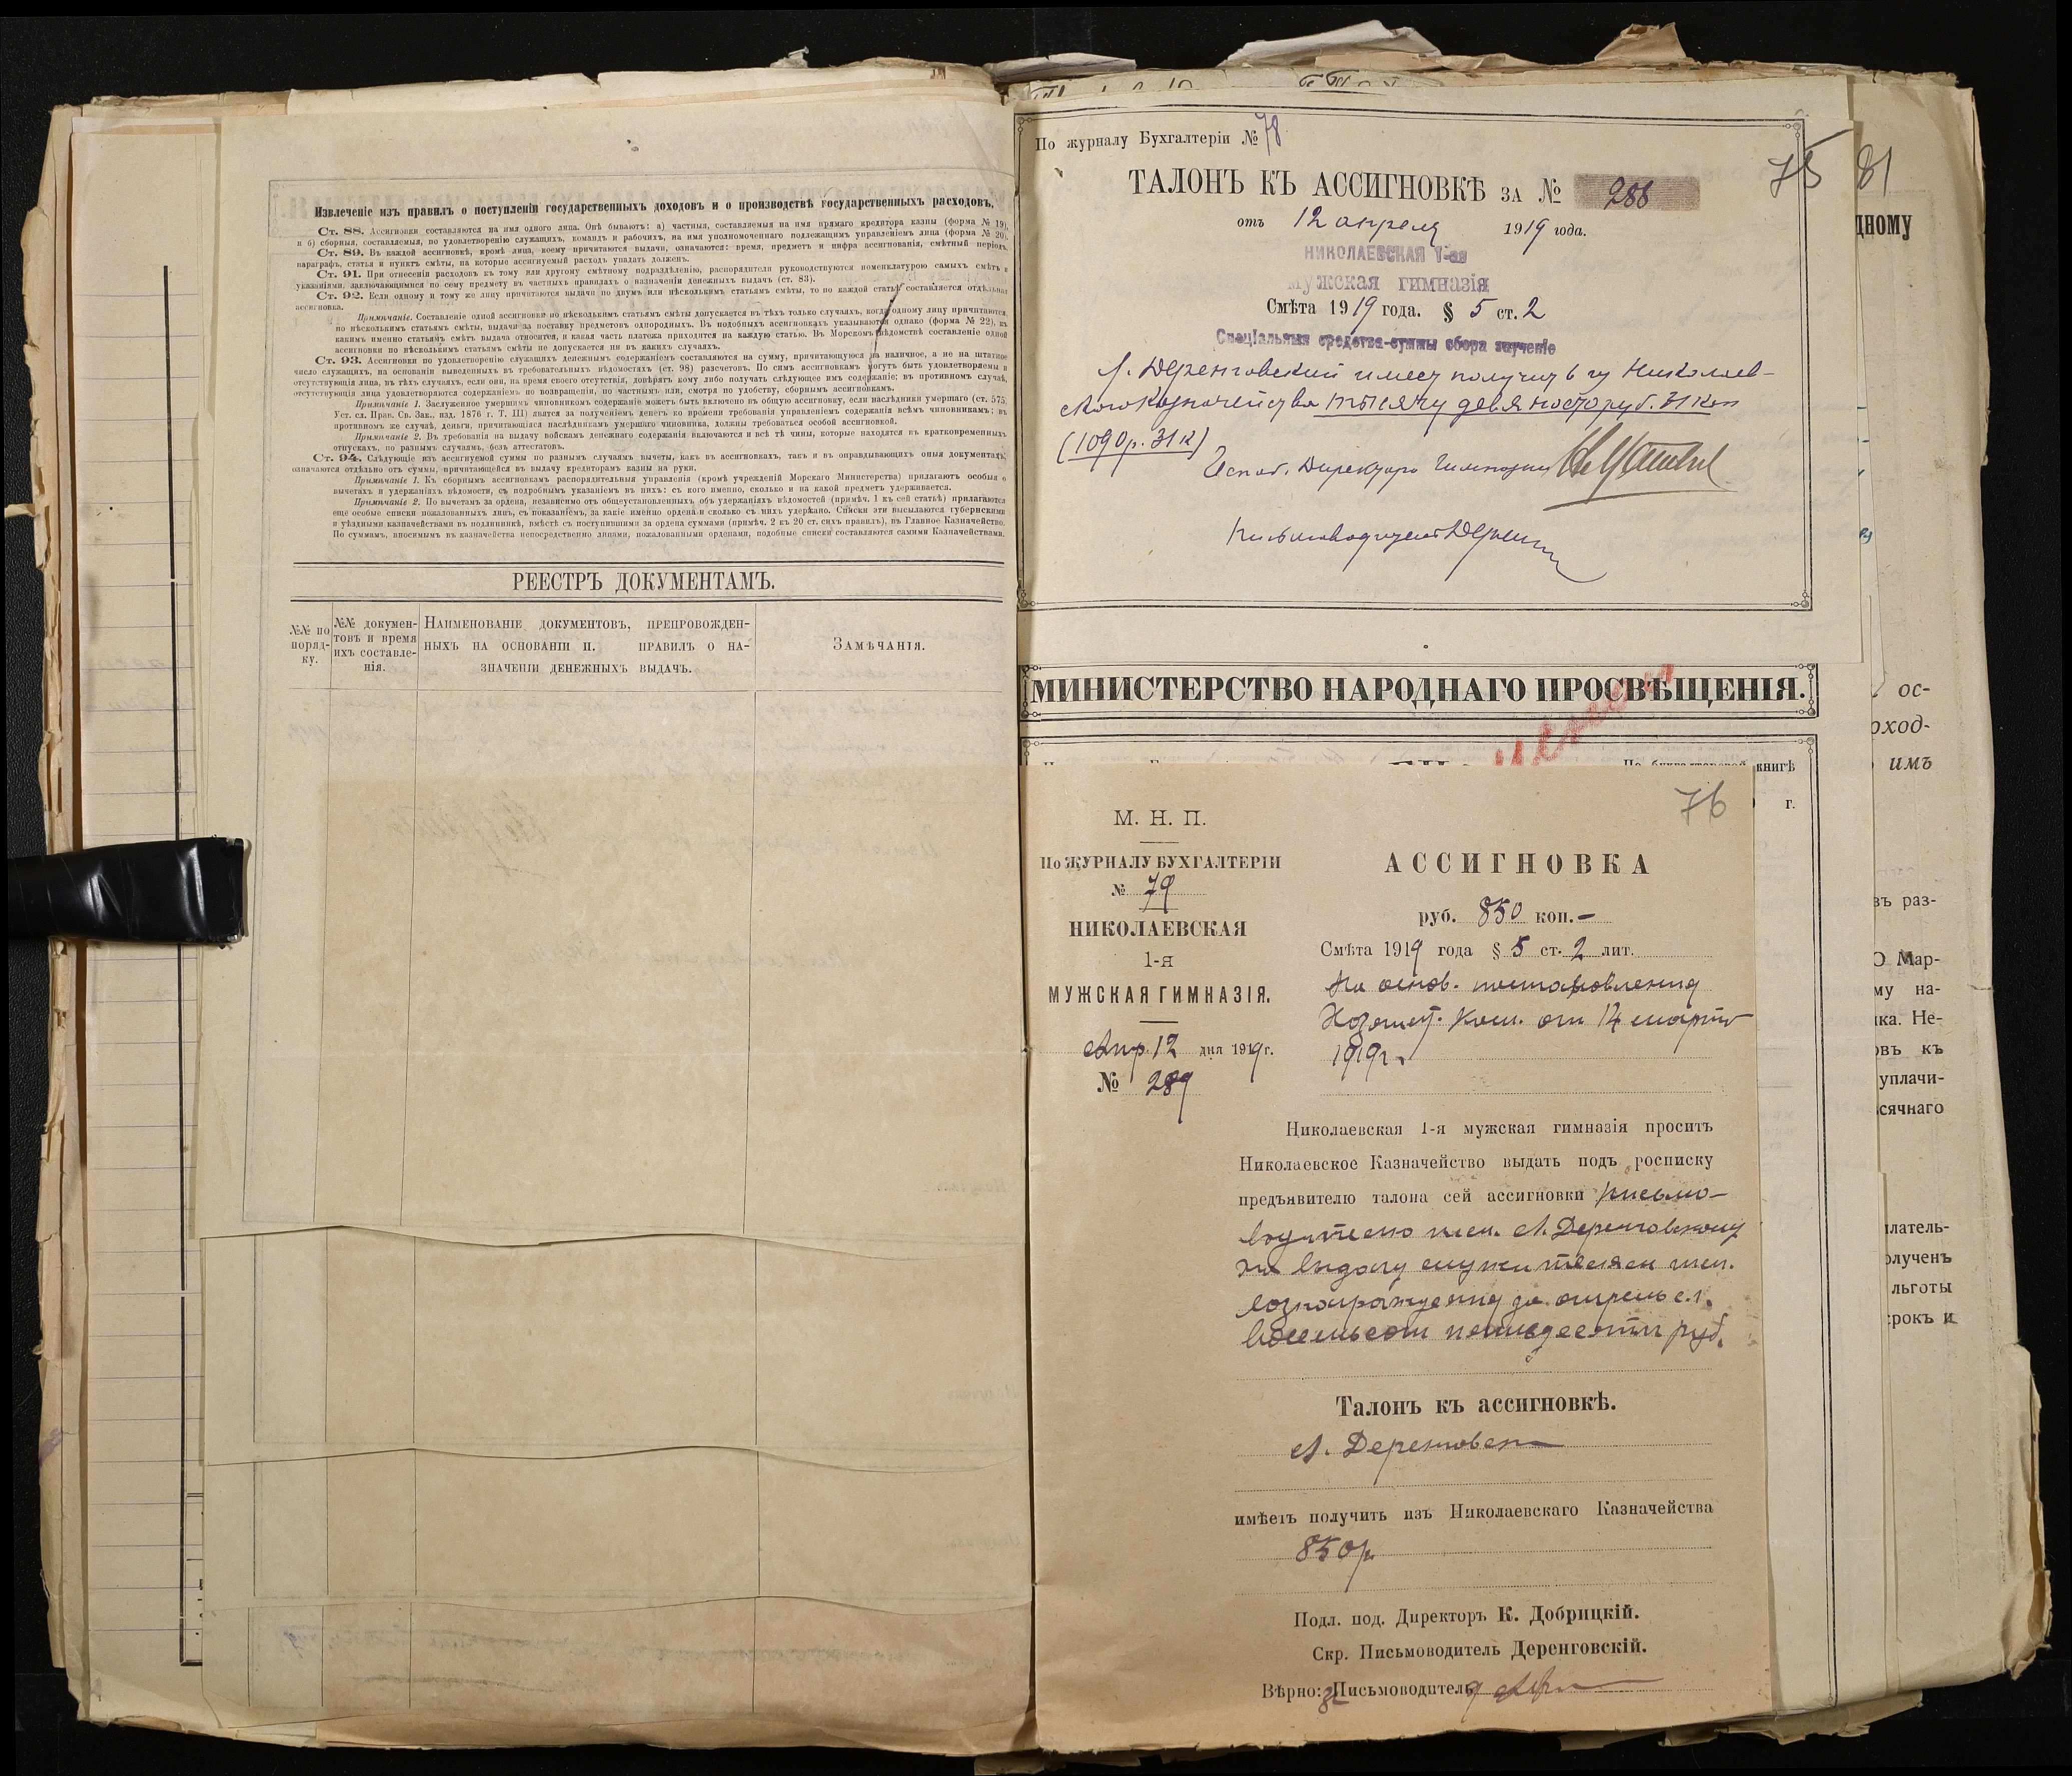 Извлеченіе изъ правилъ о поступленіи государственныхъ доходовъ и о производствѣ государственныхъ расходовъ.
Ст. 88. Ассигновки составляются на имя одного лица. Онѣ бываютъ: а) частныя, составляемыя на имя прямаго кредитора казны (форма № 19),
и б) сборныя, составляемыя, по удовлетворенію служащихъ, командъ и рабочихъ, на имя уполномоченнаго подлежащимъ управленіемъ лица (форма № 20).
Ст. 89. Въ каждой ассигновкѣ, кромѣ лица, коему причитаются выдачи, означаются: время, предметъ и цифра ассигнованія, смѣтный періодъ,
параграфъ, статья и пунктъ смѣты, на которые ассигнуемый расходъ упадать долженъ.
Ст. 91. При отнесеніи расходовъ къ тому или другому смѣтному подраздѣленію, распорядители руководствуются номенклатурою самыхъ смѣтъ и
указаніями, заключающимися по сему предмету въ частныхъ правилахъ о назначеніи денежныхъ выдачъ (ст. 83).
Ст. 92. Если одному и тому же лицу причитаются выдачи по двумъ или нѣсколькимъ статьямъ смѣты, то по каждой статьѣ составляется отдѣльная
ассигновка.
Примѣчаніе. Составленіе одной ассигновки по нѣсколькимъ статьямъ смѣты допускается въ тѣхъ только случаяхъ, когда одному лицу причитаются,
по нѣсколькимъ статьямъ смѣты, выдачи за поставку предметовъ однородныхъ. Въ подобныхъ ассигновкахъ указываются однако (форма № 22), къ
какимъ именно статьямъ смѣтъ выдача относится, и какая часть платежа приходится на каждую статью. Въ Морскомъ вѣдомствѣ составленіе одной
ассигновки по нѣсколькимъ статьямъ смѣты не допускается ни въ какихъ случаяхъ.
Ст. 93. Ассигновки по удовлетворенію служащихъ денежнымъ содержаніемъ составляются на сумму, причитающуюся на наличное, а не на штатное
число служащихъ, на основаніи выведенныхъ въ требовательныхъ вѣдомостяхъ (ст. 98) разсчетовъ. По симъ ассигновкамъ могутъ быть удовлетворяемы и
отсутствующія лица, въ тѣхъ случаяхъ, если они, на время своего отсутствія, довѣрятъ кому либо получать слѣдующее имъ содержаніе; въ противномъ случаѣ,
отсутствующія лица удовлетворяются содержаніемъ по возвращеніи, по частнымъ или, смотря по удобству, сборнымъ ассигновкамъ.
Примѣчаніе 1. Заслуженное умершимъ чиновникомъ содержаніе можетъ быть включено въ общую ассигновку, если наслѣдники умершаго (ст. 575,
Уст. сл. Прав. Св. Зак., изд. 1876 г. Т. III) явятся за полученіемъ денегъ ко времени требованія управленіемъ содержанія всѣмъ чиновникамъ; въ
противномъ же случаѣ, деньги, причитающіяся наслѣдникамъ умершаго чиновника, должны требоваться особой ассигновкой.
Примѣчаніе 2. Въ требованія на выдачу войскамъ денежнаго содержанія включаются и всѣ тѣ чины, которые находятся въ кратковременныхъ
отпускахъ, по разнымъ случаямъ, безъ аттестатовъ.
Ст. 94. Слѣдующіе изъ ассигнуемой суммы по разнымъ случаямъ вычеты, какъ въ ассигновкахъ, такъ и въ оправдывающихъ оныя документахъ,
означаются отдѣльно отъ суммы, причитающейся въ выдачу кредиторамъ казны на руки.
Примѣчаніе 1. Къ сборнымъ ассигновкамъ распорядительныя управленія (кромѣ учрежденій Морскаго Министерства) прилагаютъ особыя о
вычетахъ и удержаніяхъ вѣдомости, съ подробнымъ указаніемъ въ нихъ: съ кого именно, сколько и на какой предметъ удерживается.
Примѣчаніе 2. По вычетамъ за ордена, независимо отъ общеустановленныхъ объ удержаніяхъ вѣдомостей (примѣч. 1 къ сей статьѣ) прилагаются
еще особые списки пожалованныхъ лицъ, съ показаніемъ, за какіе именно ордена и сколько съ нихъ удержано. Списки эти высылаются губернскими
и уѣздными казначействами въ подлинникѣ, вмѣстѣ съ поступившими за ордена суммами (примѣч. 2 къ 20 ст. сихъ правилъ), въ Главное Казначейство.
По суммамъ, вносимымъ въ казначейства непосредственно лицами, пожалованными орденами, подобные списки составляются самими Казначействами.
РЕЕСТРЪ ДОКУМЕНТАМЪ.
№№ по поряд-ку.
№№ докумен-товъ и время ихъ составле-нія.
Наименованіе документовъ, препровожден-
ныхъ на основаніи п. правилъ о на-
значеніи денежныхъ выдачъ.
Замѣчанія.
По журналу Бухгалтеріи № 78
75
81
ТАЛОНЪ КЪ АССИГНОВКѢ за № 288
отъ 12 апреля 1919 года.
НИКОЛАЕВСКАЯ 1-ая
мужская гимназія
Смѣта 1919 года. § 5 ст. 2
Спеціальныя средства-суммы сбора за ученіе
Л. Деренговский имеет получить из Николаев-
ского Казначейства тысячу девяносто руб. 31 коп
(1090 р. 31 к)
Испол. Директора Гимназии
Письмоводитель
МИНИСТЕРСТВО НАРОДНАГО ПРОСВѢЩЕНІЯ.
книгѣ
г.
76
М. Н. П.
По ЖУРНАЛУ БУХГАЛТЕРІИ
№ 79
НИКОЛАЕВСКАЯ
1-я
МУЖСКАЯ ГИМНАЗІЯ.
Апр. 12 дня 1919 г.
№ 289
АССИГНОВКА
руб. 850 коп. —
Смѣта 1919 года § 5 ст. 2 лит.
На основ. постановления
Хозяйст. Ком. от 14 марта
1919 г.
Николаевская 1-я мужская гимназія проситъ
Николаевское Казначейство выдать подъ росписку
предъявителю талона сей ассигновки письмо-
водителю гим. Л. Деренговскому
на выдачу служителям гим.
вознаграждения за апрель с.г.
восемьсот пятьдесят руб.
Талонъ къ ассигновкѣ.
Л. Деренговск
имѣетъ получить изъ Николаевскаго Казначейства
850 р
Подл. под. Директоръ К. Добрицкій.
Скр. Письмоводитель Деренговскій.
Вѣрно: Письмоводитель
дному
ос-
оход-
имъ
въ раз-
О Мар-
му на-
ика. Не-
овъ къ
уплачи-
сячнаго
платель-
олученъ
льготы
срокъ и